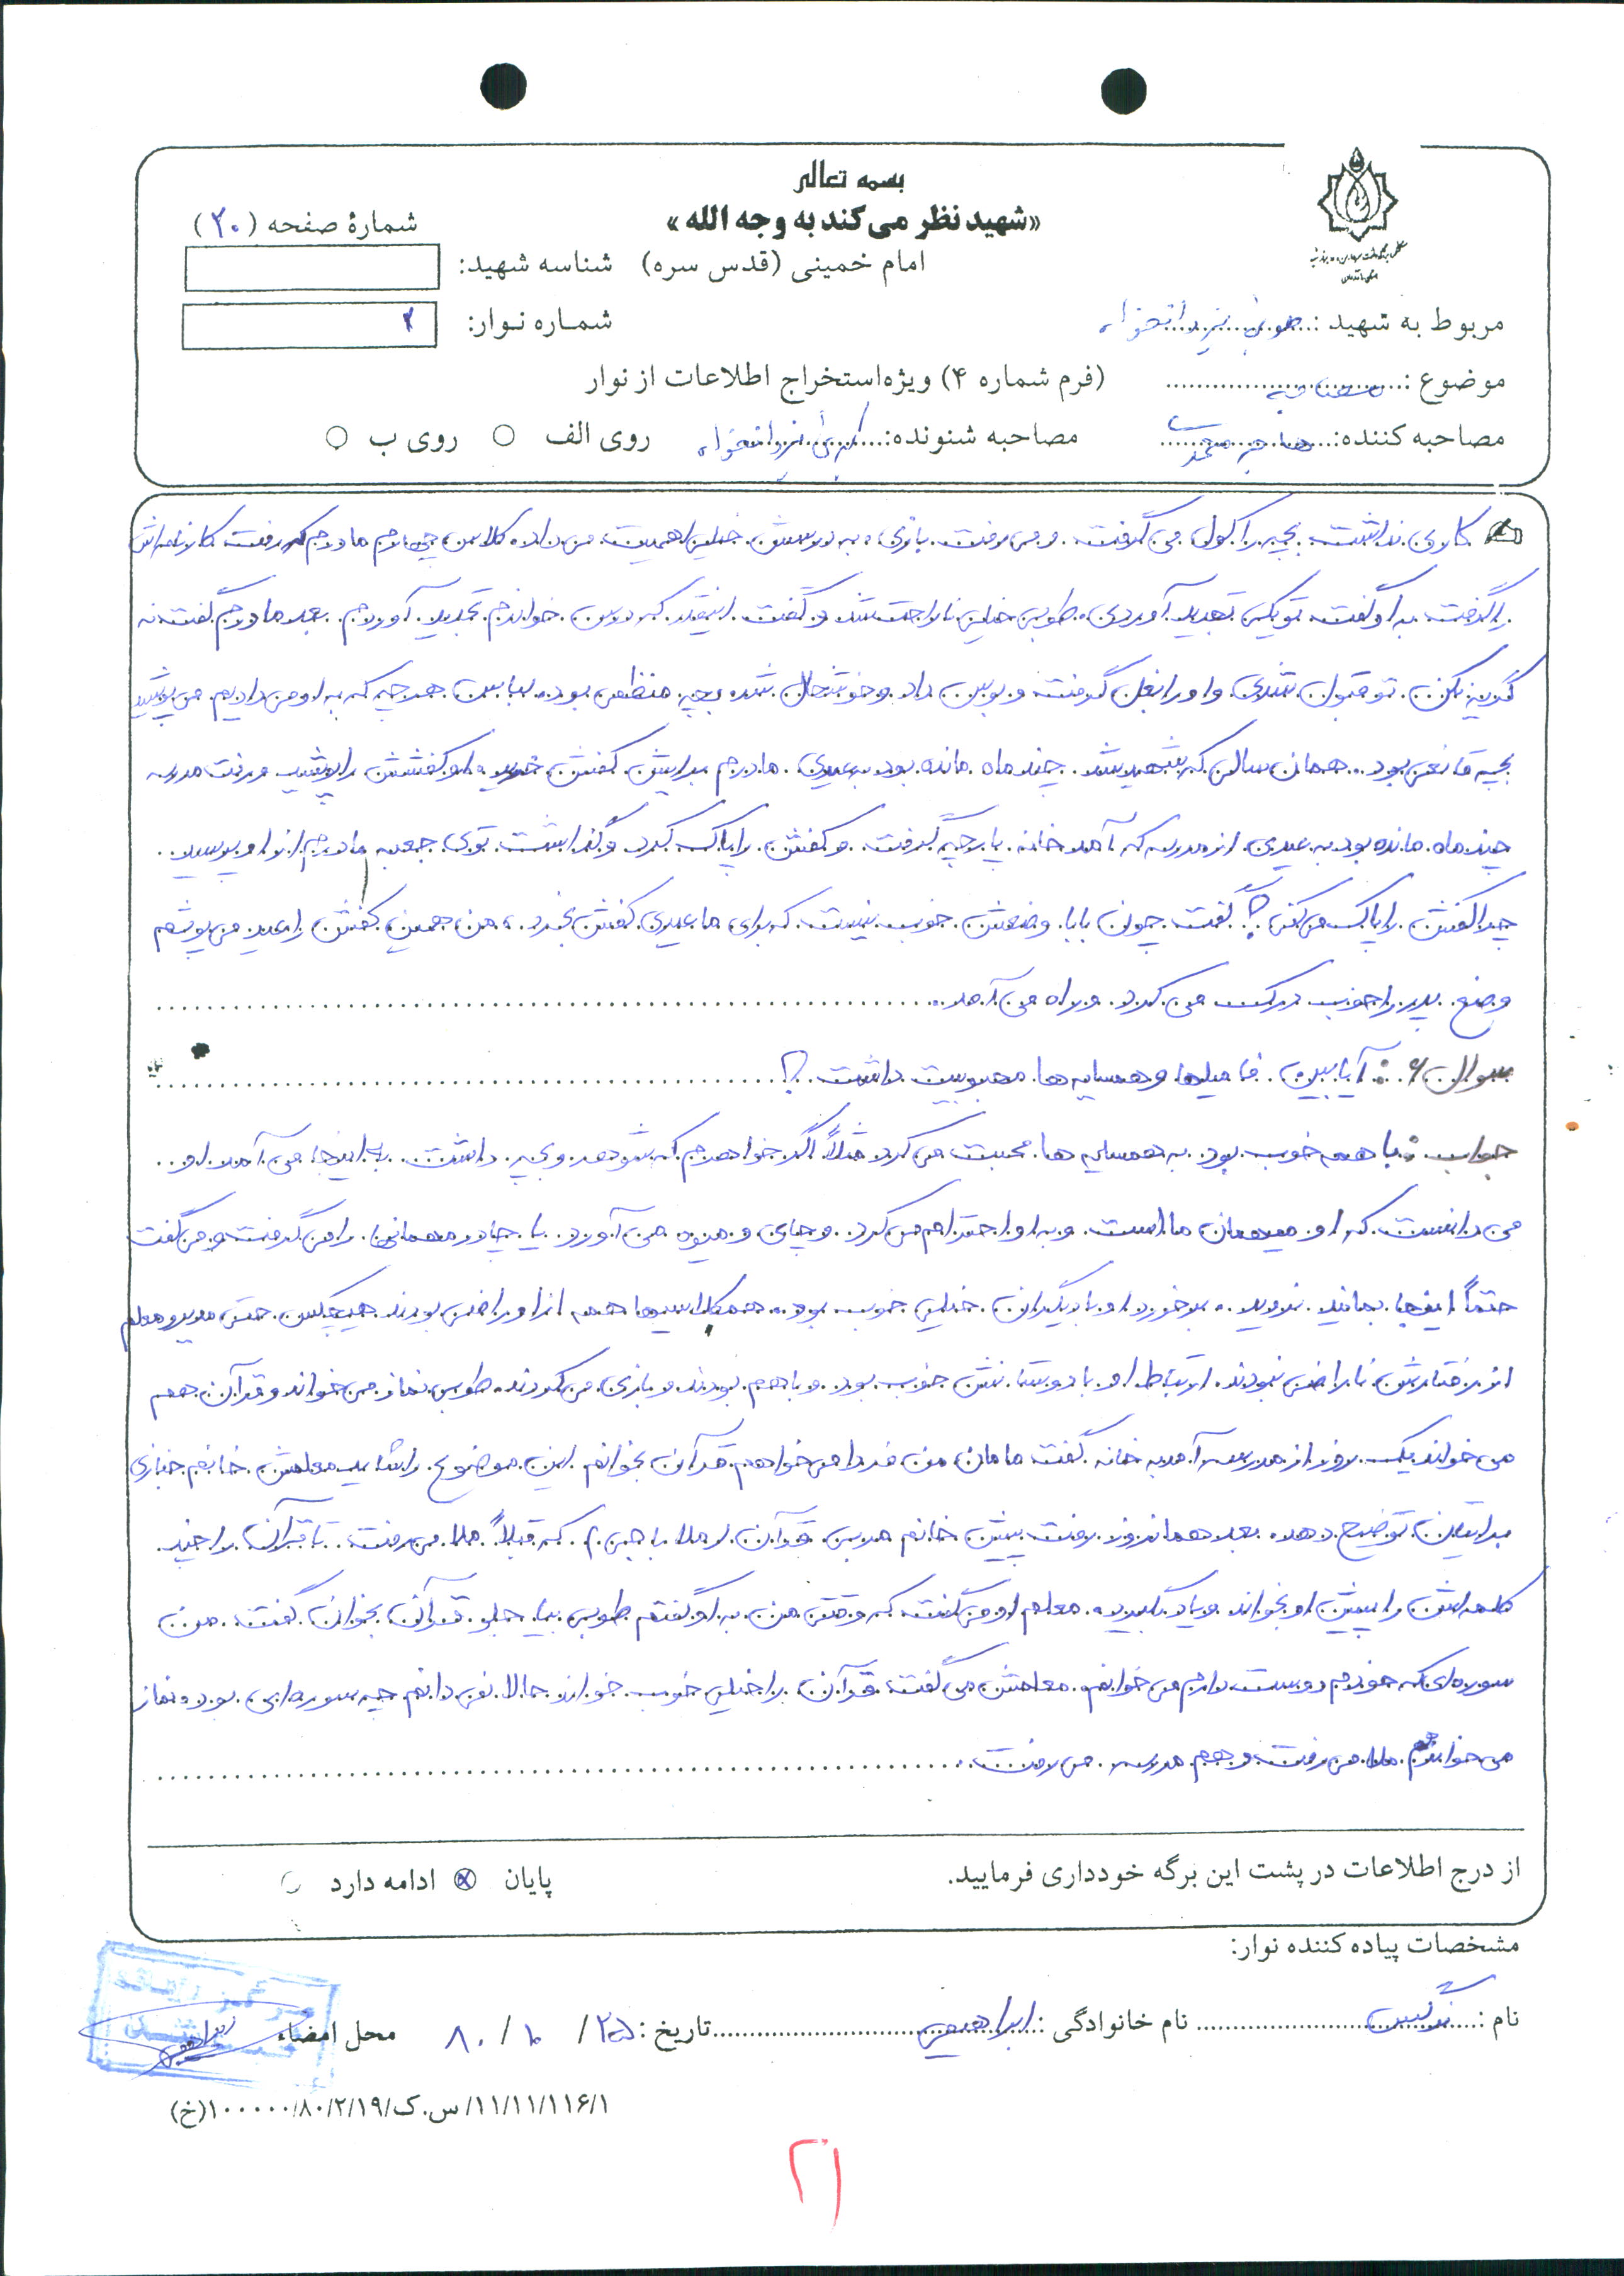 بسمه تعالی
«شهید نظر می‌کند به وجه الله»
شمارهٔ صفحه (۲۰)
امام خمینی (قدس سره)
شناسه شهید:
مربوط به شهید :
شمـاره نـوار: ۲
موضوع :
(فرم شماره ۴) ویژه‌استخراج اطلاعات از نوار
مصاحبه کننده:
مصاحبه شنونده:
روی الف روی ب
کاری نداشت بچه را کول می گرفت و می رفت بازی، به درسش خیلی اهمیت می داد، کلاس چهارم مادرم که رفت کارنامه اش
را گرفت به او گفت تو یکی تجدید آوردی. طوبی خیلی ناراحت شد و گفت اینقدر که درس خواندم تجدید آوردم. بعد مادرم گفت نه
گریه نکن تو قبول شدی و او را بغل گرفت و بوس داد و خوشحال شد. بچه منظمی بود. لباس هر چه که به او می دادیم می پوشید
بچه قانعی بود. همان سالی که شهید شد چند ماه مانده بود به عیدی. مادرم برایش کفش خرید، او کفشش را پوشید و رفت مدرسه
چند ماه مانده بود به عیدی از مدرسه که آمد خانه پارچه گرفت و کفش را پاک کرد و گذاشت توی جعبه مادرم از او پرسید
چرا کفش را پاک می کنی؟ گفت چون بابا وضعش خوب نیست که برای ما عیدی کفش بخرد، من همین کفش را عید می پوشم
وضع پدر را خوب درک می کرد و راه می آمد.
سوال ۶: آیا بین فامیلها و همسایه ها محبوبیت داشت؟
جواب: با همه خوب بود. به همسایه ها محبت می کرد مثلاً اگر خواهرم که شوهر و بچه داشت به اینجا می آمد او
می دانست که او میهمان ما است و به او احترام می کرد و چای و میوه می آورد یا چادر مهمانها را می گرفت و می گفت
حتماً اینجا بمانید نروید. برخورد او با دیگران خیلی خوب بود. همکلاسیها همه از او راضی بودند هیچکس حتی مدیر و معلم
از رفتارش ناراضی نبودند. ارتباط او با دوستانش خوب بود و با هم بودند و بازی می کردند. طوبی نماز می خواند و قرآن هم
می خواند یک روز از مدرسه آمد به خانه گفت مامان من فردا می خواهم قرآن بخوانم این موضوع را شاید معلمش خانم خبازی
برایتان توضیح دهد. بعد همانروز رفت پیش خانم مدرس قرآن (ملا باجی) که قبلاً ملا می رفت تا قرآن را چند
کلمه اش را پیش او بخواند و یاد بگیرد. معلم او می گفت که وقتی من به او گفتم طوبی بیا جلو قرآن بخوان گفت من
سوره ای که خودم دوست دارم می خوانم. معلمش می گفت قرآن را خیلی خوب خواند حالا نمی دانم چه سوره ای بود. نماز
می خواند هم ملا می رفت و هم مدرسه می رفت.
از درج اطلاعات در پشت این برگه خودداری فرمایید.
پایان ⊗ ادامه دارد
مشخصات پیاده کننده نوار:
نام : نرگس نام خانوادگی : ابراهیمی تاریخ : ۲۵ / ۱۰ / ۸۰ محل امضاء
۱۱/۱۱/۱۱۶/۱/س.ک/۱۰۰۰۰۰/۸۰/۲/۱۹(خ)
۲۱